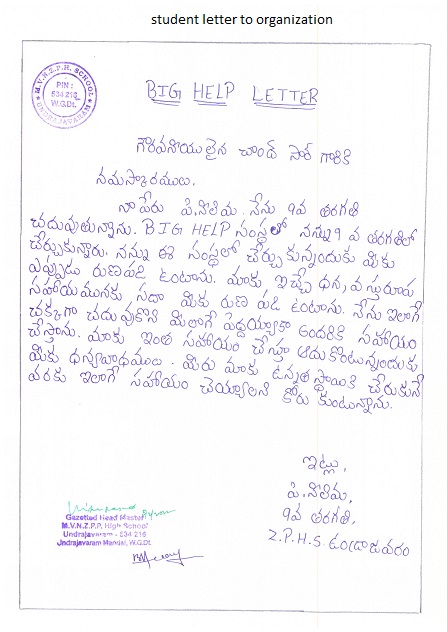 student letter to organization
M.V.N.Z.P.H. SCHOOL
PIN :
534 216
W.G.Dt.
UNDRAJAVARAM
BIG HELP LETTER
గౌరవనీయులైన చాంద్ సార్ గారికి
నమస్కారములు.
నా పేరు పి.నీలిమ. నేను 9వ తరగతి
చదువుతున్నాను. BIG HELP సంస్థలో నన్ను 9 వ తరగతిలో
చేర్చుకున్నారు. నన్ను ఈ సంస్థలో చేర్చుకున్నందుకు మీకు
ఎప్పుడు రుణపడి ఉంటాను. మాకు, ఇచ్చే ధన, వస్తురూప
సహాయమునకు సదా మీకు రుణ పడి ఉంటాను. నేను ఇలాగే
చక్కగా చదువుకొని మీలాగే పెద్దయ్యాకా అందరికి సహాయం
చేస్తాను. మాకు ఇంత సహాయం చేస్తూ ఆదుకొంటున్నందుకు
మీకు ధన్యవాధములు. మీరు మాకు ఉన్నత స్థాయికి చేరుకునే
వరకు ఇలాగే సహాయం చెయ్యాలని కోరు కుంటున్నాను.
ఇట్లు,
పి.నీలిమ,
9వ తరగతి,
Z.P.H.S. ఉండ్రాజవరం
Gazetted Head Master
M.V.N.Z.P.P. High School
Undrajavaram - 534 216
Undrajavaram Mandal, W.G.Dt.